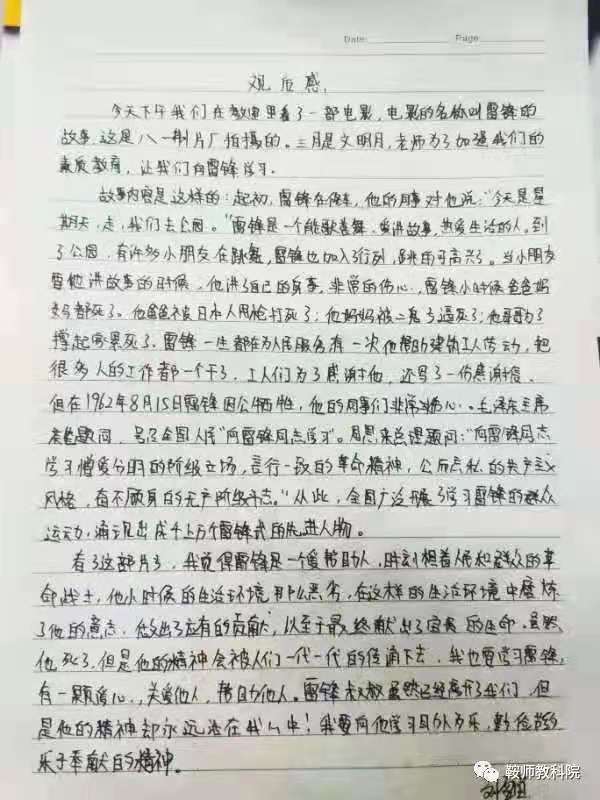 Date: Page:
观后感
今天下午我们在教室里看了一部电影,电影的名称叫雷锋的
故事,这是八一制片厂拍摄的。三月是文明月,老师为了加强我们的
素质教育,让我们向雷锋学习。
故事内容是这样的:起初,雷锋在,他的同事对他说:“今天是星
期天,走,我们去公园。”雷锋是一个能歌善舞,爱讲故事,热爱生活的人。到
了公园,有许多小朋友在跳舞,雷锋也加入了行列,跳的可高兴了。当小朋友
要他讲故事的时候,他讲了自己的身事,非常的伤心,雷锋小时候爸爸妈
妈都死了。他爸爸被日本人用枪打死了;他妈妈被逼死了;他哥哥为了
撑起家累死了。雷锋一生都在为人民服务有一次他帮助建筑工人劳动,把
很多人的工作都一个干了,工人们为了感谢他,还写了一份感谢信。
但在1962年8月15日雷锋因公牺牲,他的同事们非常伤心。毛泽东主席
亲笔题词,号召全国人民“向雷锋同志学习”。周恩来总理题词:“向雷锋同志
学习憎爱分明的阶级立场,言行一致的革命精神,公而忘私的共产主义
风格,奋不顾身的无产阶级斗志。”从此,全国广泛开展了学习雷锋的群众
运动,涌现出成千上万个雷锋式的先进人物。
看了这部片子,我觉得雷锋是一个爱帮助人,时刻想着人民和群众的革
命战士,他小时候的生活环境那么恶劣,在这样的生活环境中磨炼
了他的意志,他做出了应有的贡献,以至于最终献出了宝贵的生命。虽然
他死了,但是他的精神会被人们一代一代的传诵下去,我也要学习雷锋,
有一颗爱心,关爱他人,帮助他人。雷锋叔叔虽然已经离开了我们,但
是他的精神却永远活在我心中!我要向他学习助人为乐,勤俭节约
乐于奉献的精神。
鞍师教科院